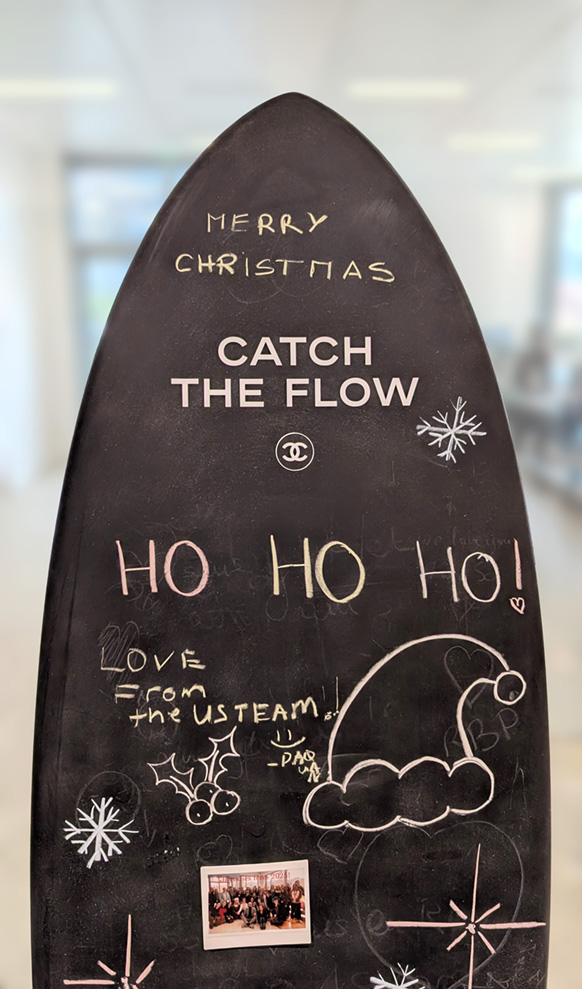 MERRY
CHRISTMAS
CATCH
THE FLOW
HO HO HO!
LOVE
From
the US TEAM!
-DAQUAN
RBP